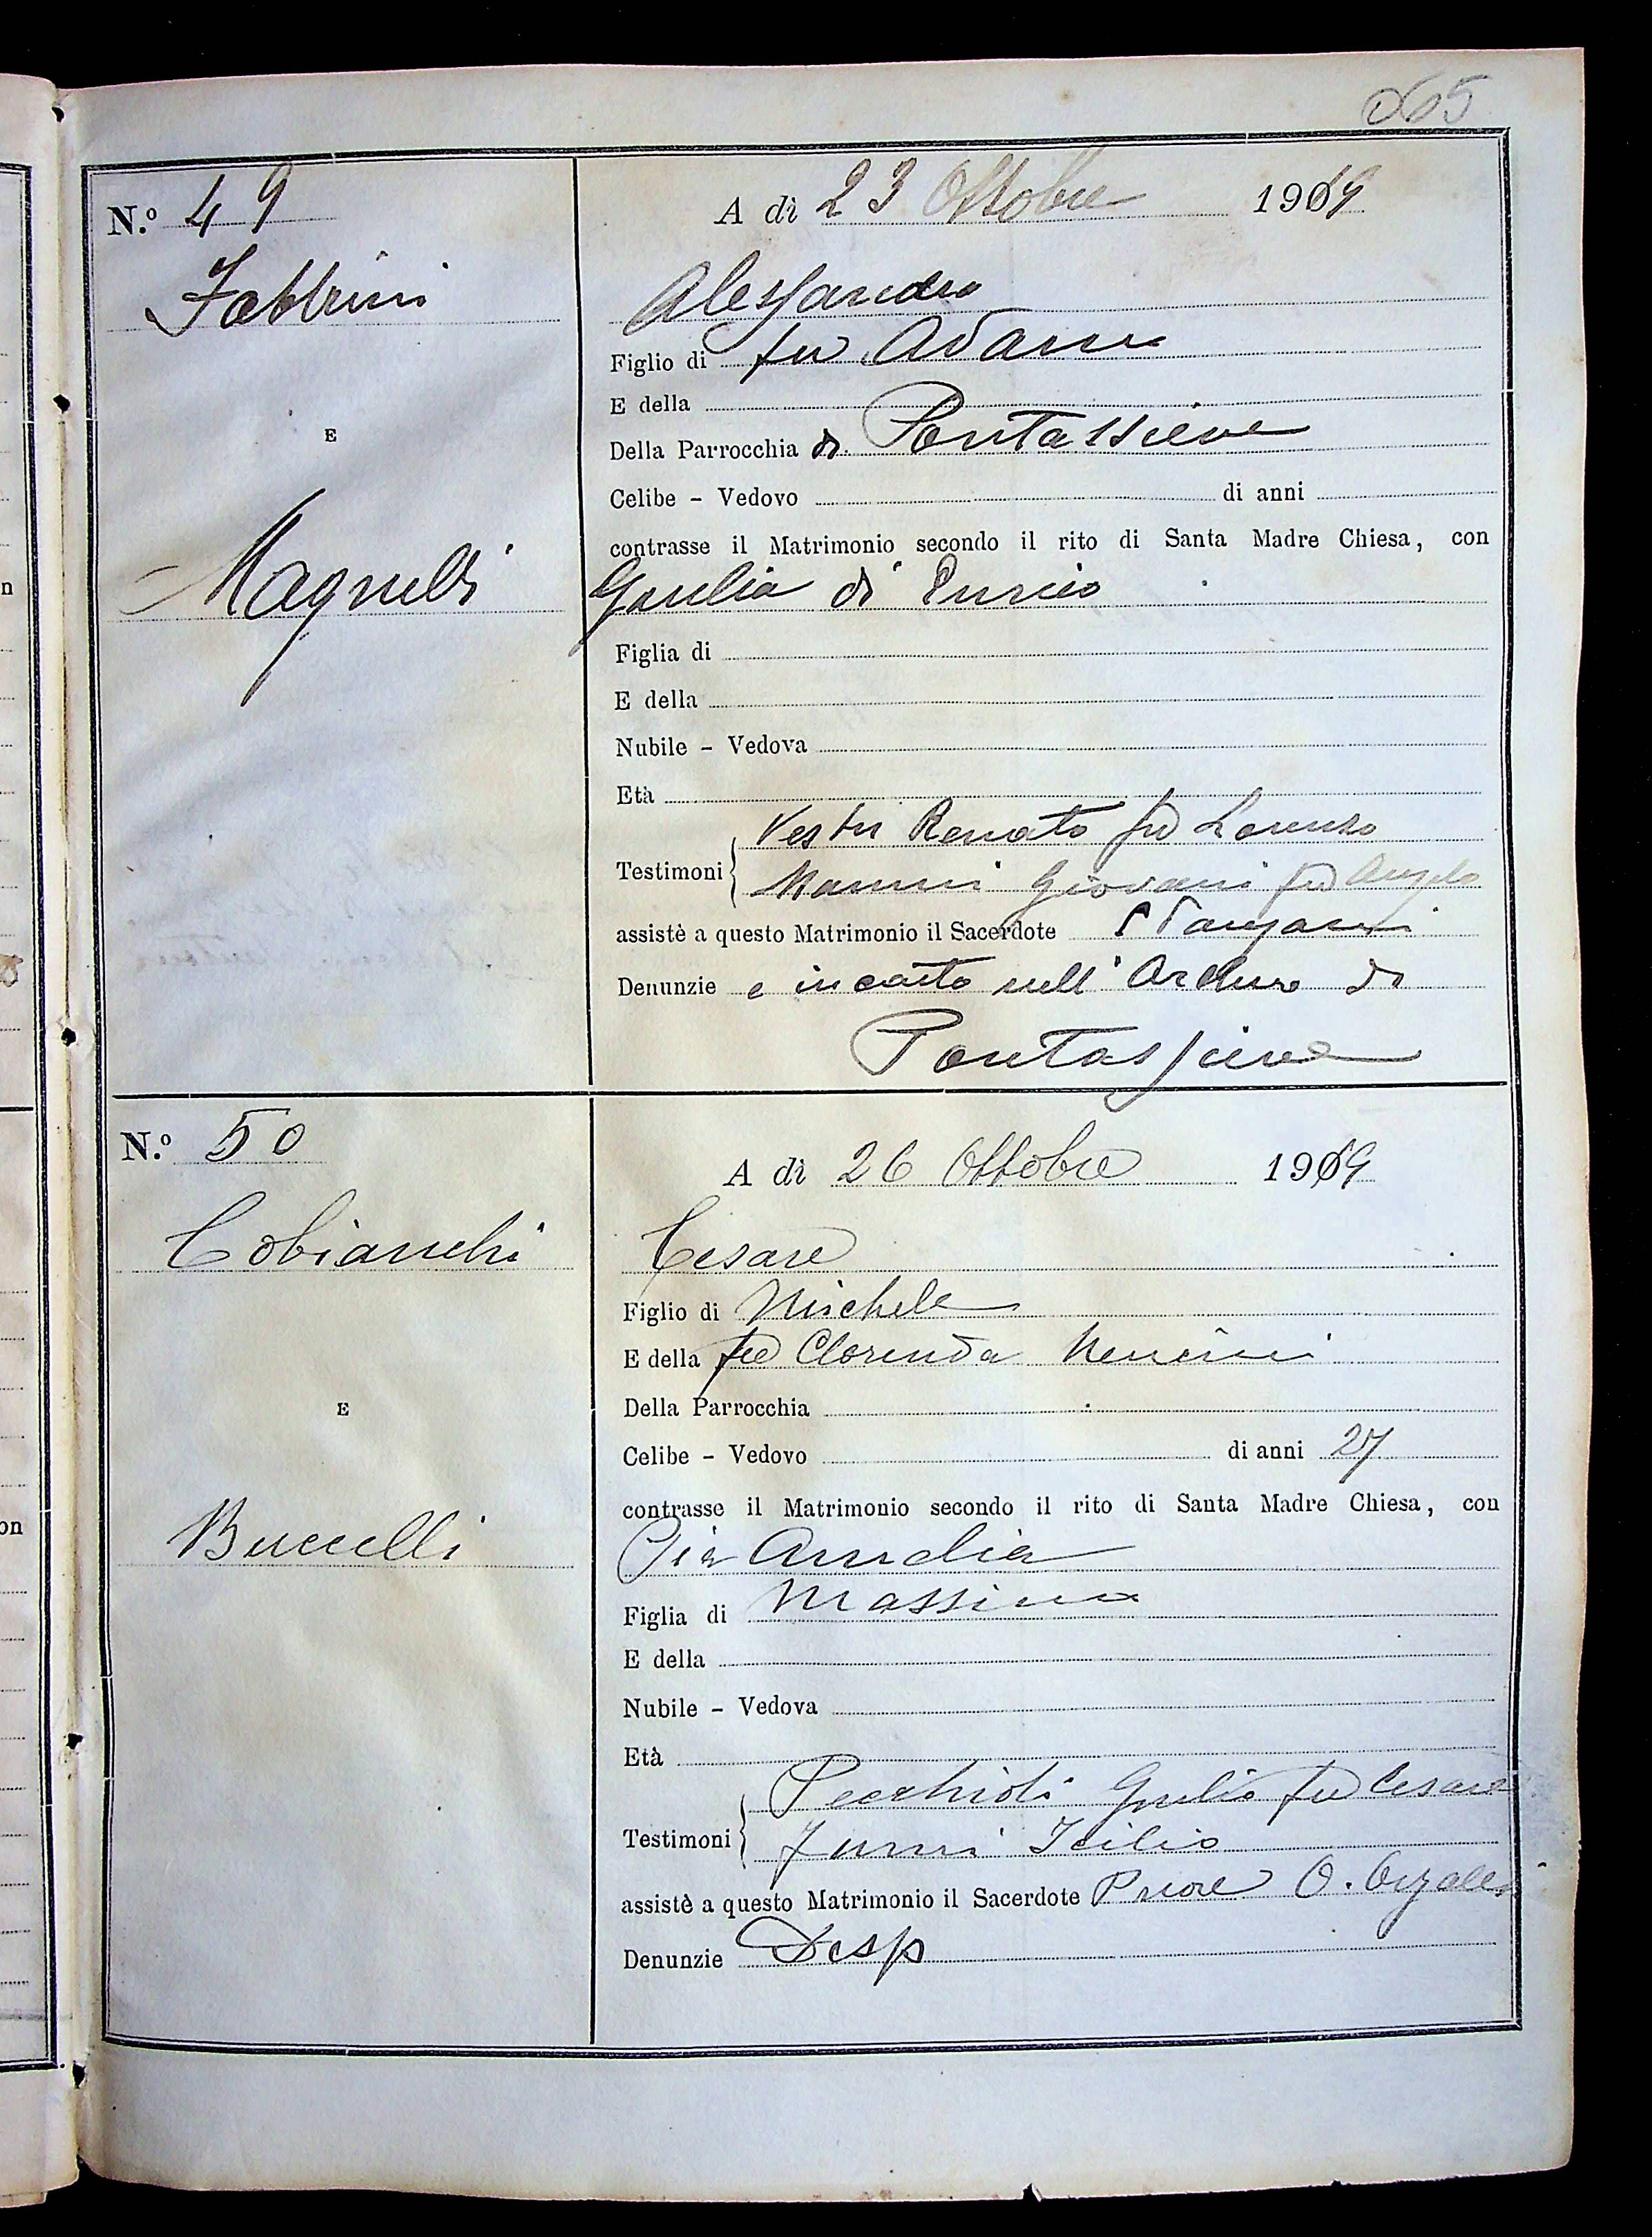 065
N.º 49
A dì 23 Ottobre 1919
Fabbrini
Alessandro
Figlio di fu Adamo
E della
Della Parrocchia di Pontassieve
E
Celibe - Vedovo di anni
contrasse il Matrimonio secondo il rito di Santa Madre Chiesa, con
Magnelli
Giulia di Enrico
Figlia di
E della
Nubile - Vedova
Età
Vestri Renato fu Lorenzo
Testimoni
Mannini Giovani fu Angelo
assistè a questo Matrimonio il Sacerdote
Denunzie e incarto nell'Archivio di
Pontassieve
N.º 50
A dì 26 Ottobre 1919
Cobianchi
Cesare
Figlio di Michele
E della fu Clorinda Nencini
Della Parrocchia
E
Celibe - Vedovo di anni 27
contrasse il Matrimonio secondo il rito di Santa Madre Chiesa, con
Buccelli
Pia Amelia
Figlia di Massimo
E della
Nubile - Vedova
Età
Pecchioli Giulio fu Cesare
Testimoni
Icilio
assistè a questo Matrimonio il Sacerdote Priore O.
Denunzie Disp